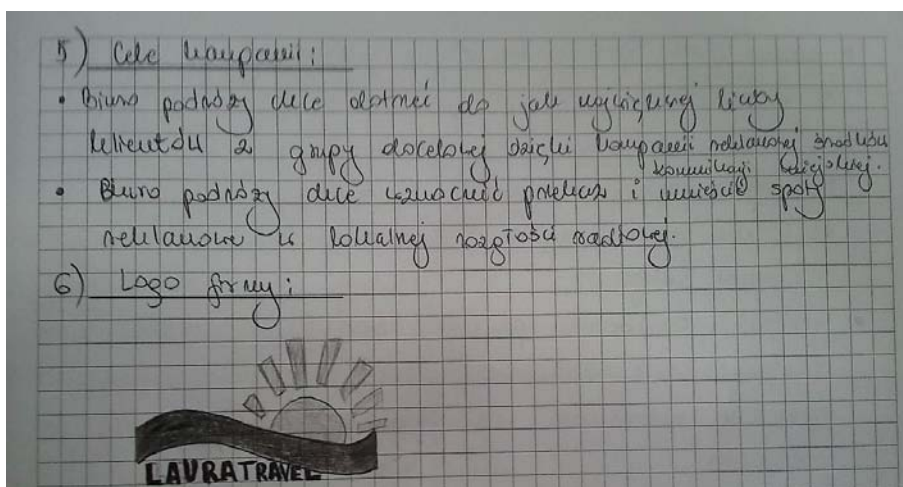 5) Cele kampanii:
• Biuro podróży chce dotrzeć do jak największej liczby
klientów z grupy docelowej dzięki kampanii reklamowej środków
komunikacji miejskiej.
• Biuro podróży chce wzmocnić przekaz i umieścić spoty
reklamowe w lokalnej rozgłośni radiowej.
6) Logo firmy:
LAURATRAVEL